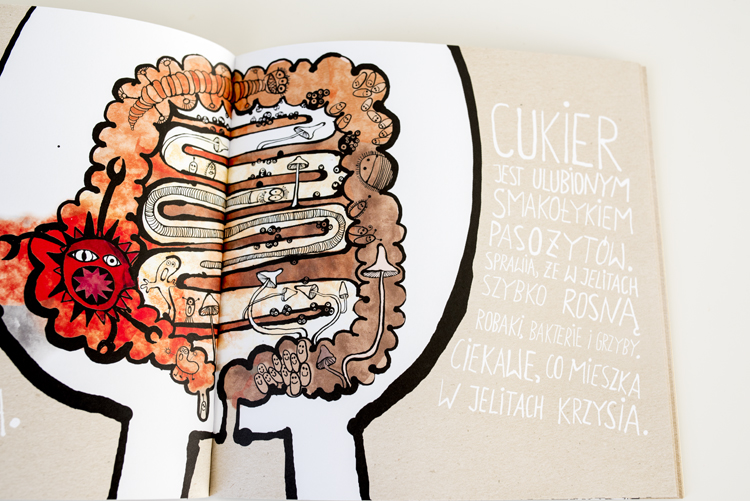 CUKIER
JEST ULUBIONYM
SMAKOŁYKIEM
PASOŻYTÓW.
SPRAWIA, ŻE W JELITACH
SZYBKO ROSNĄ
ROBAKI, BAKTERIE I GRZYBY.
CIEKAWE, CO MIESZKA
W JELITACH KRZYSIA.